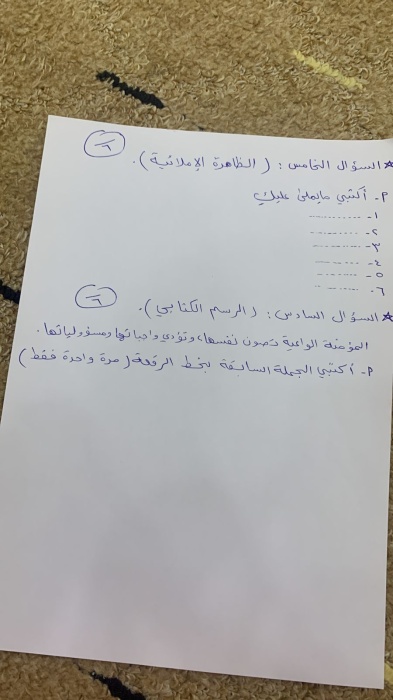 * السؤال الخامس : ( الظاهرة الإملائية ) . ٦
م- أكتبي مايملى عليكِ
١- ............
٢- ............
٣- ............
٤- ............
٥- ............
٦- ............
* السؤال السادس : ( الرسم الكتابي ) . ٦
المؤمنة الواعية تصون نفسها، وتؤدي واجباتها ومسؤولياتها .
م- أكتبي الجملة السابقة بخط الرقعة ( مرة واحدة فقط )